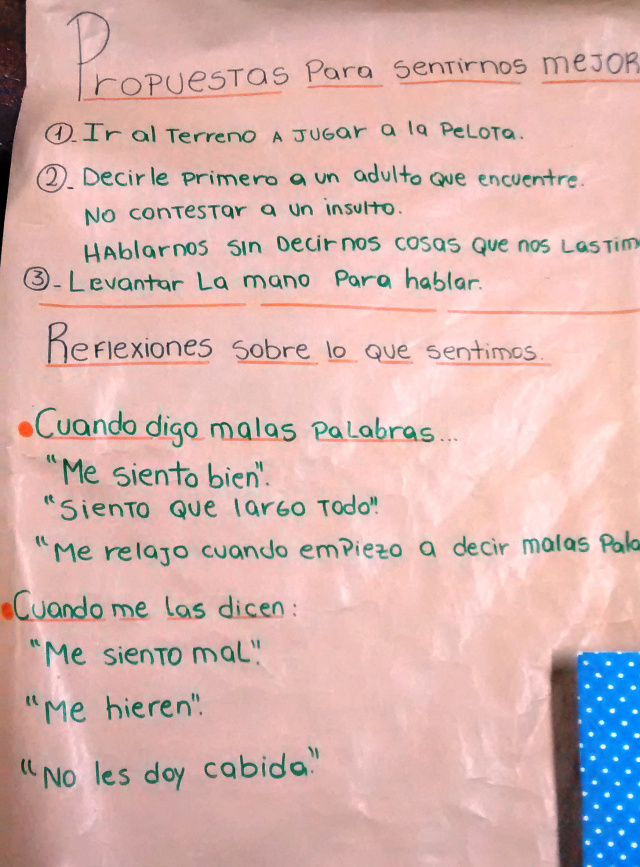 Propuestas para sentirnos mejor
1. Ir al terreno a jugar a la pelota.
2. Decirle primero a un adulto que encuentre.
No contestar a un insulto.
Hablarnos sin decirnos cosas que nos lastim
3. Levantar la mano para hablar.
Reflexiones sobre lo que sentimos.
Cuando digo malas palabras...
"Me siento bien".
"Siento que largo todo".
"Me relajo cuando empiezo a decir malas pala
Cuando me las dicen:
"Me siento mal".
"Me hieren".
"No les doy cabida."